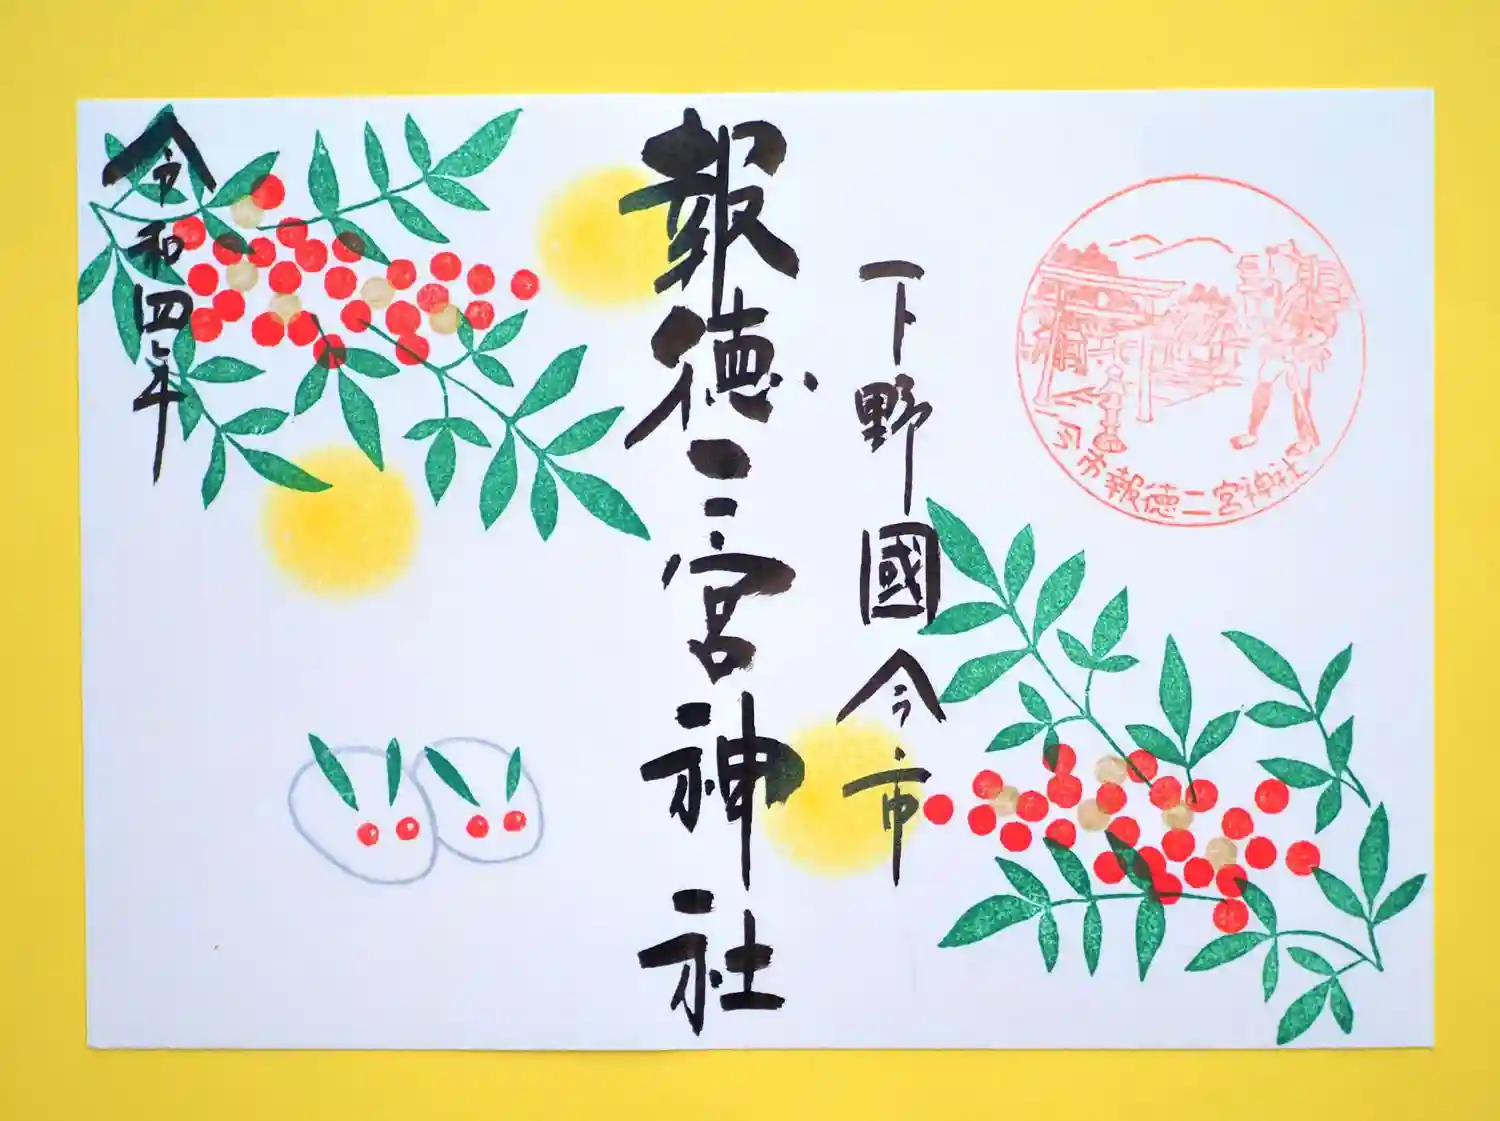 今市報徳二宮神社
下野國今市
報徳二宮神社
令和四年